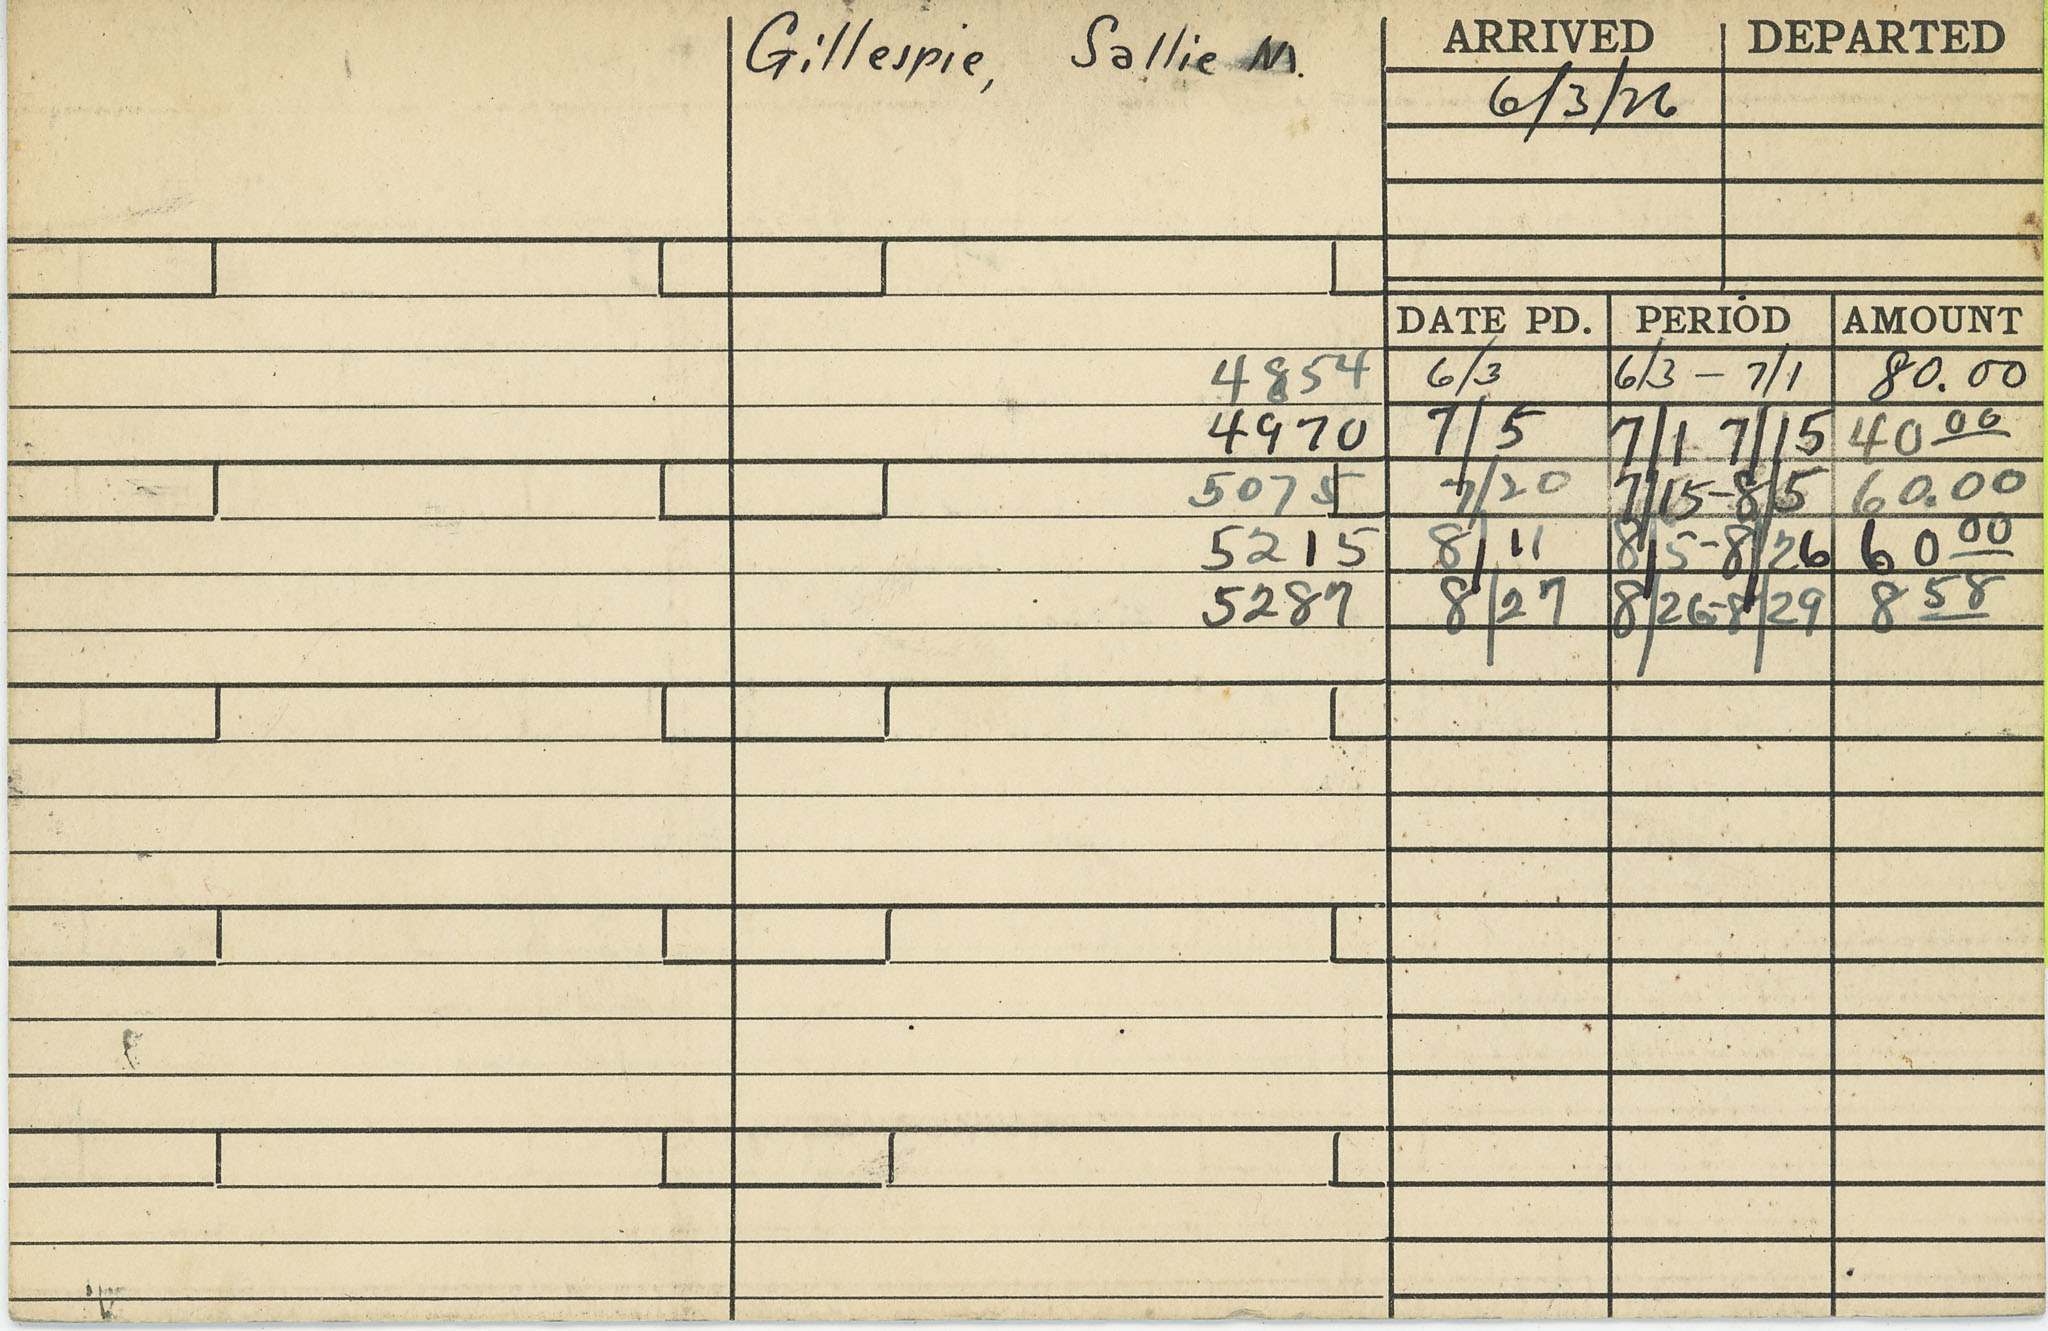 Gillespie, Sallie M. ARRIVED DEPARTED
6/3/26
DATE PD. PERIOD AMOUNT
4854 6/3 6/3 - 7/1 80.00
4970 7/5 7/1 7/15 40 00
5075 7/20 7/15-8/5 60.00
5215 8/11 8/5-8/26 60 00
5287 8/27 8/26-8/29 8 58